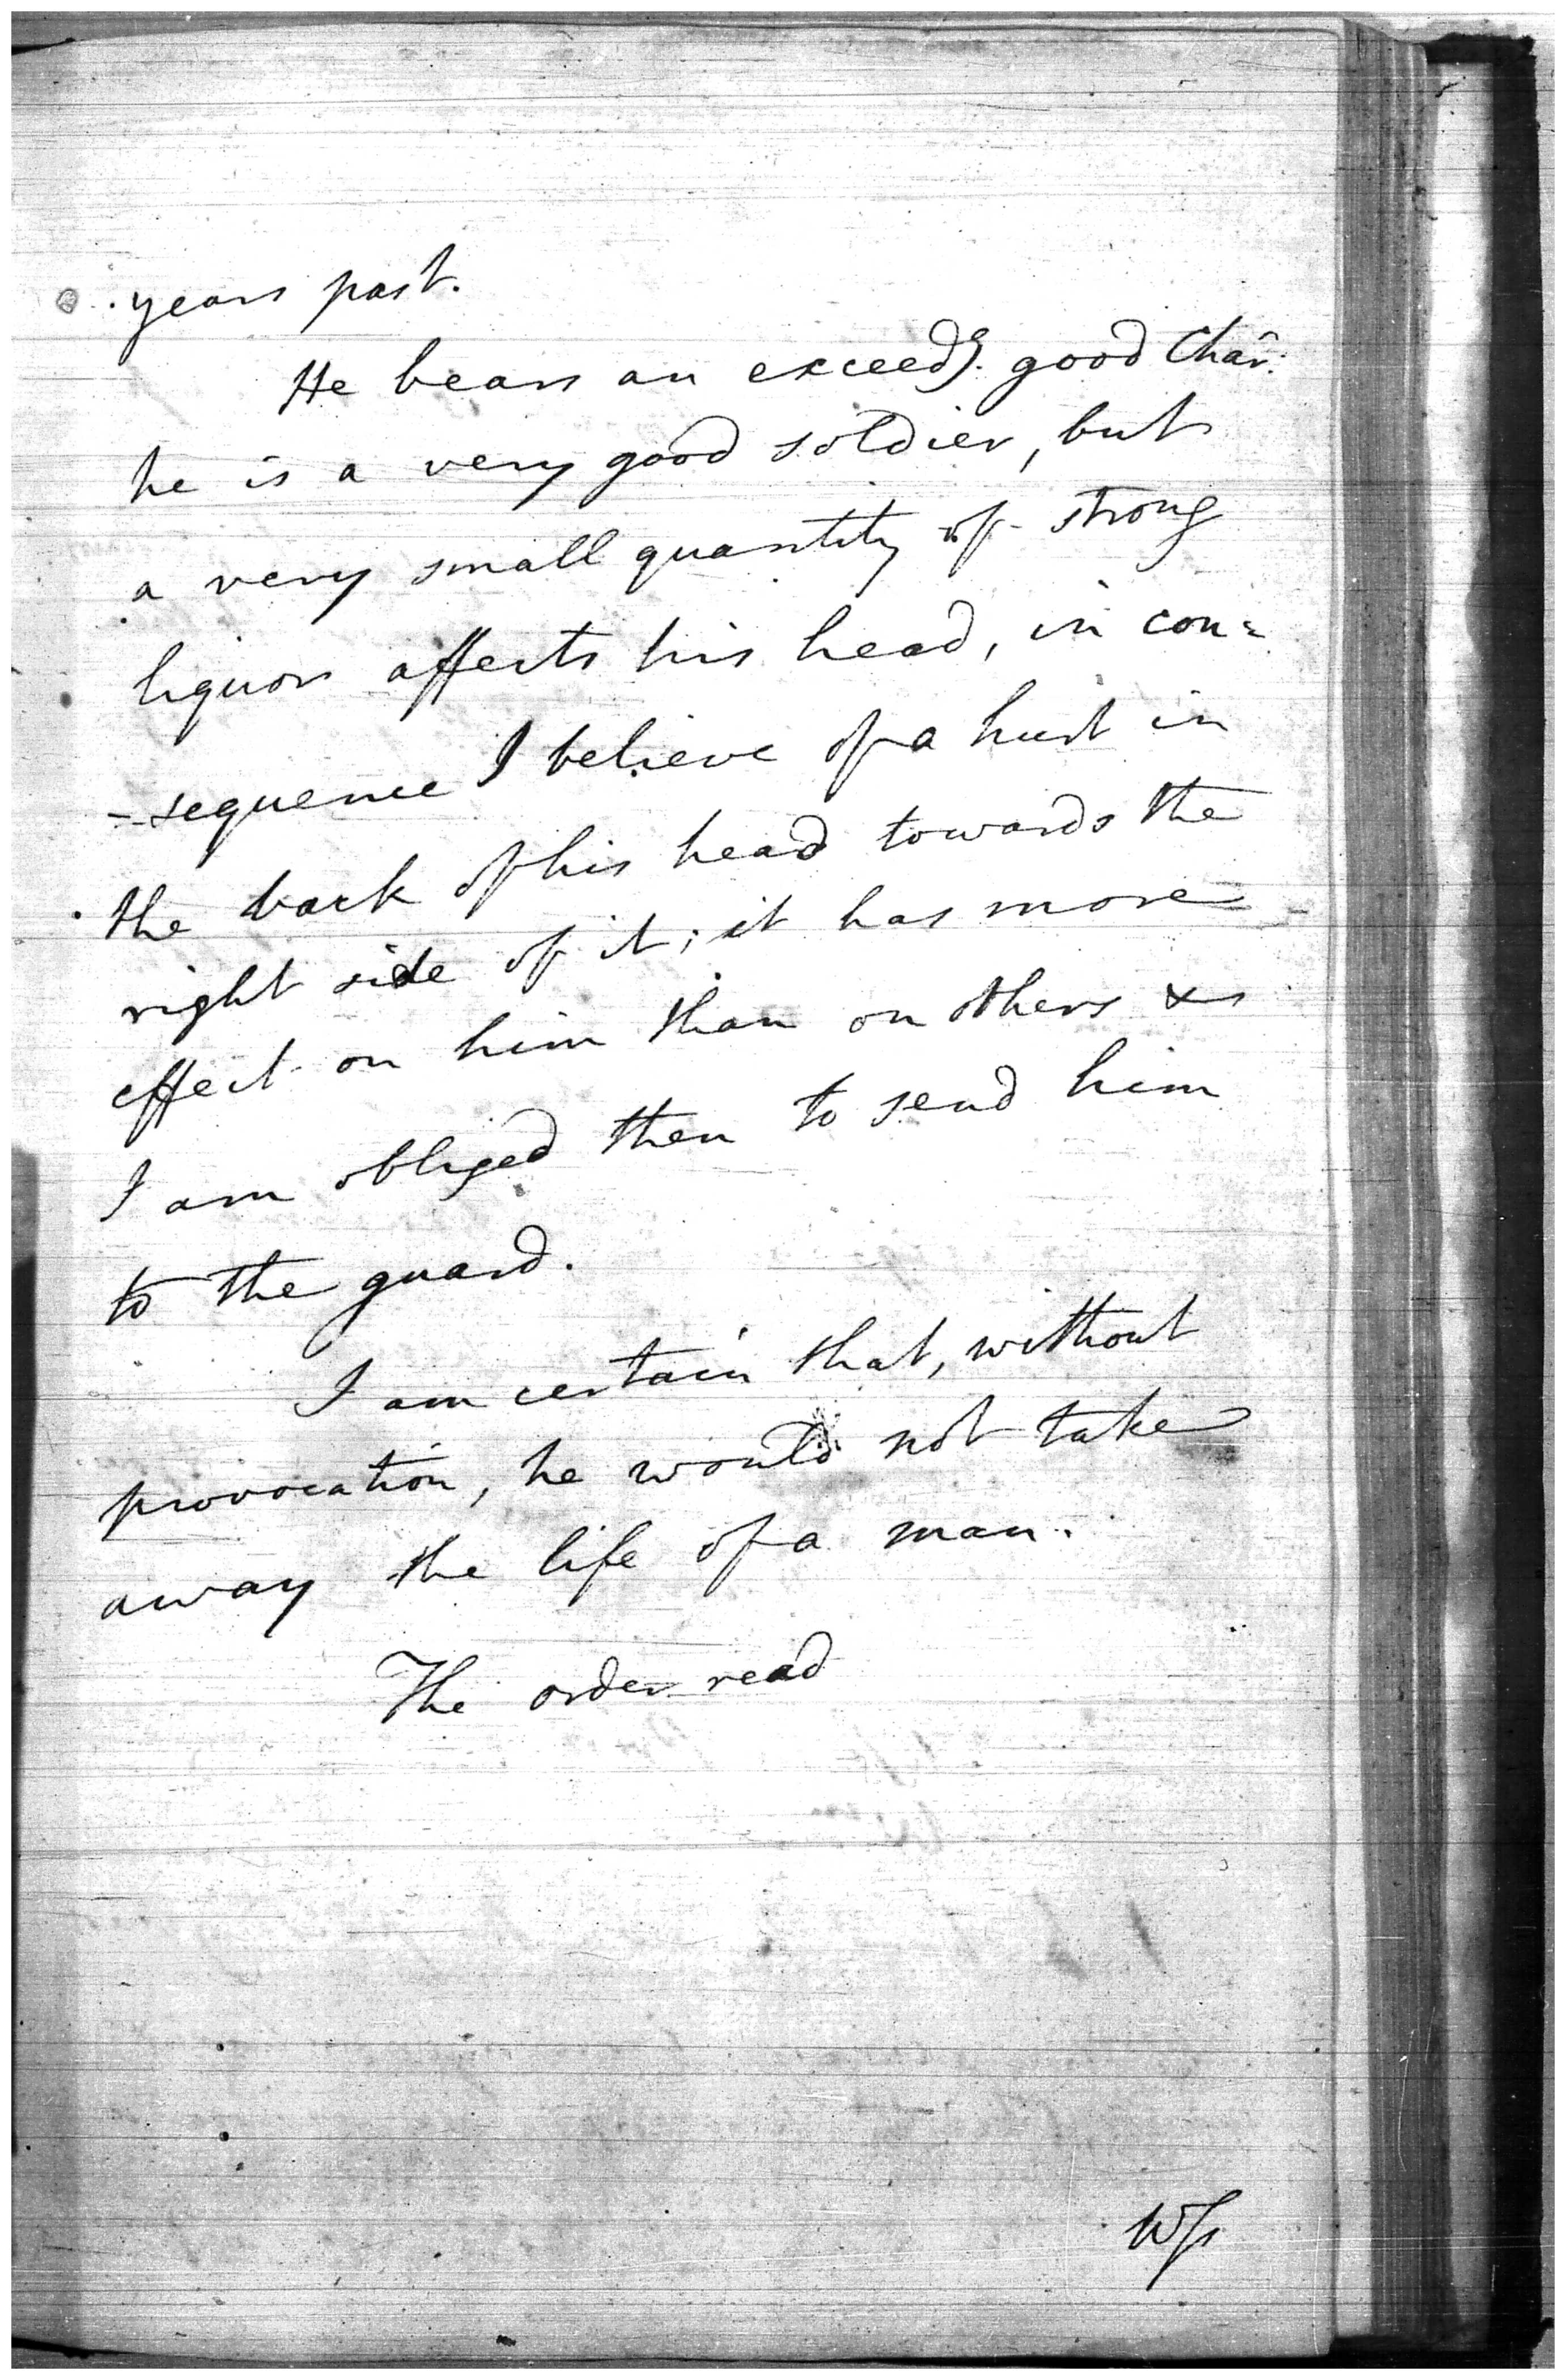 years past.
He bears an exceedg. good Char:
he is a very good soldier, but
a very small quantity of strong
liquors affects his head, in con=
-sequence I believe of a hurt in
the back of his head towards the
right side of it; it has more
effect on him than on others &
I am obliged then to send him
to the guard.
I am certain that, without
provocation, he would not take
away the life of a man.
The order read